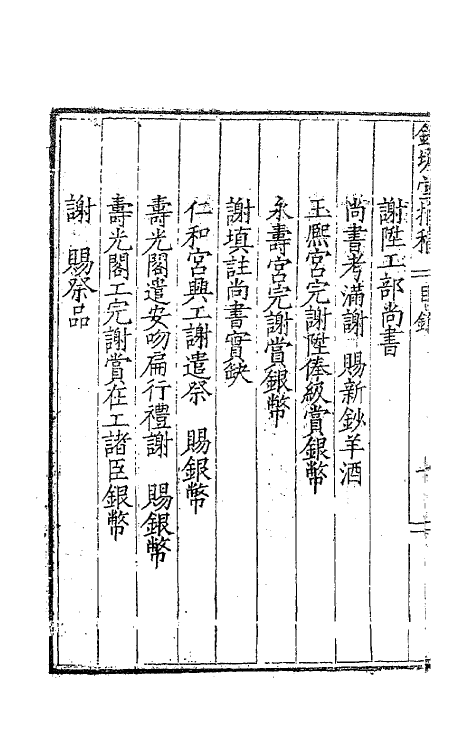 謝陞工部尚書
尚書考滿謝 賜新鈔羊酒
玉熈宮完謝陞俸級賞銀幣
永壽宮完謝賞銀幣
謝填註尚書實缺
仁和宮興工謝遣祭 賜銀幣
壽光閣遣安吻扁行禮謝 賜銀幣
壽光閣工完謝賞在工諸臣銀幣
謝 賜祭品